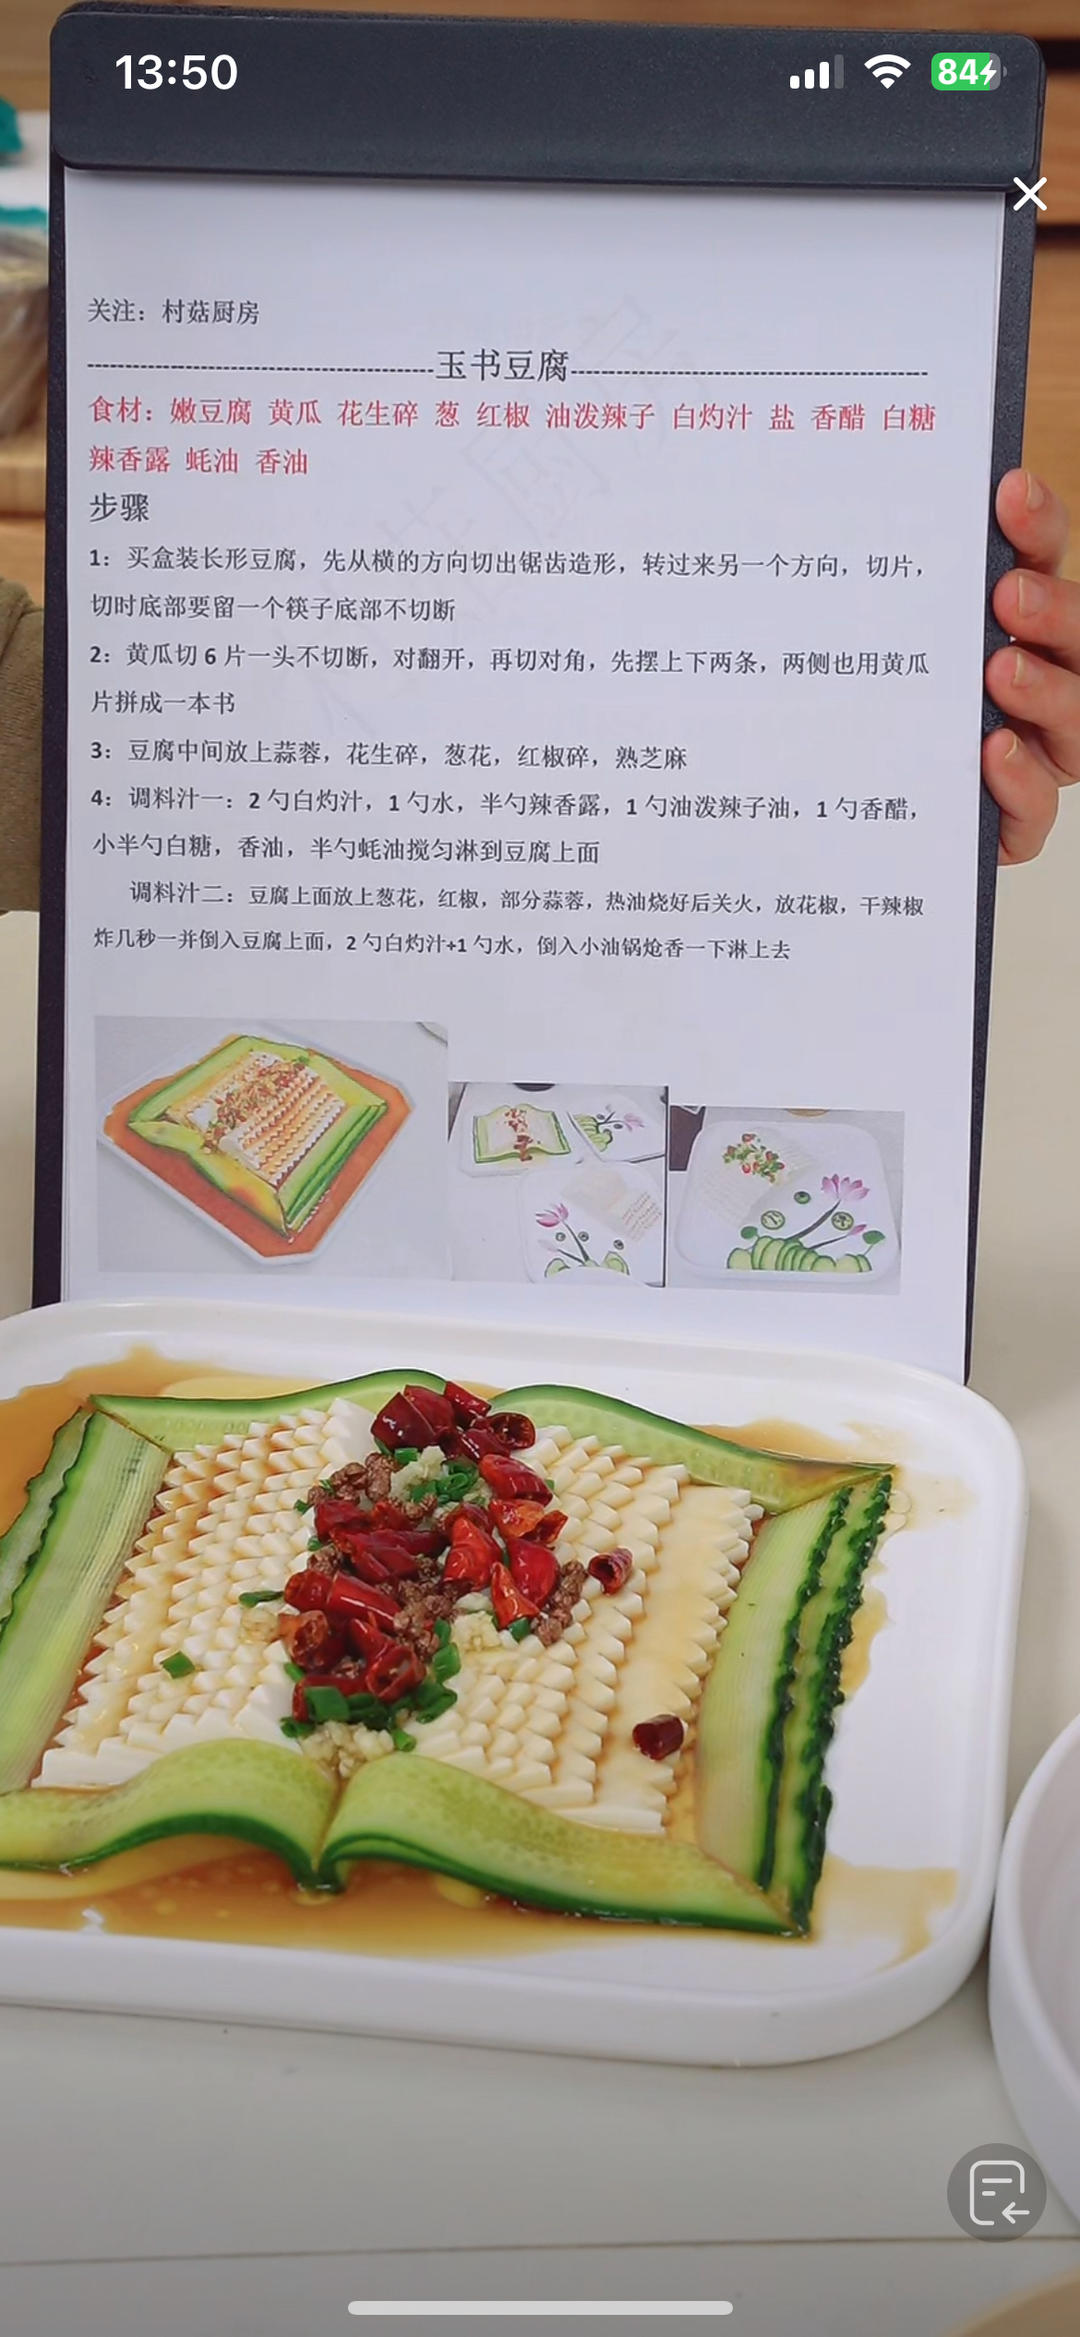 13:50
84
关注：村菇厨房
玉书豆腐
食材：嫩豆腐 黄瓜 花生碎 葱 红椒 油泼辣子 白灼汁 盐 香醋 白糖
辣香露 蚝油 香油
步骤
1：买盒装长形豆腐，先从横的方向切出锯齿造形，转过来另一个方向，切片，
切时底部要留一个筷子底部不切断
2：黄瓜切 6 片一头不切断，对翻开，再切对角，先摆上下两条，两侧也用黄瓜
片拼成一本书
3：豆腐中间放上蒜蓉，花生碎，葱花，红椒碎，熟芝麻
4：调料汁一：2 勺白灼汁，1 勺水，半勺辣香露，1 勺油泼辣子油，1 勺香醋，
小半勺白糖，香油，半勺蚝油搅匀淋到豆腐上面
调料汁二：豆腐上面放上葱花，红椒，部分蒜蓉，热油烧好后关火，放花椒，干辣椒
炸几秒一并倒入豆腐上面，2 勺白灼汁+1 勺水，倒入小油锅炝香一下淋上去
村菇厨房